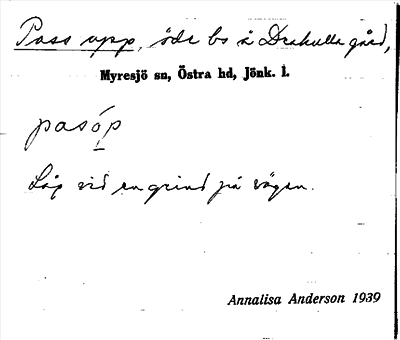 Pass upp, öde bs å Drakulla gård,
Myresjö sn, Östra hd, Jönk. l.
pasóp
Låg vid en grind på vägen.
Annalisa Anderson 1939